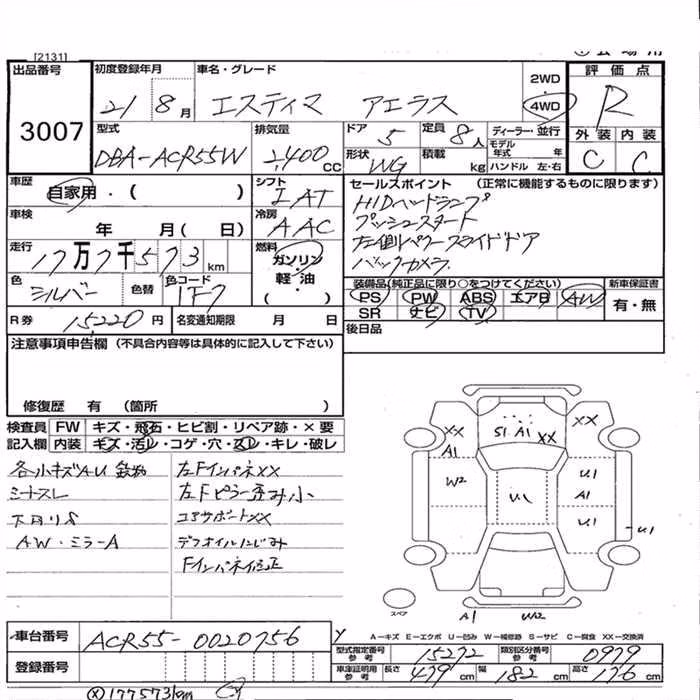 [2131]
出品番号
3007
初度登録年月
21 8月
車名・グレード
エスティマ アエラス
2WD
4WD
評価点
R
外装 内装
C C
型式
DBA-ACR55W
排気量
2,400cc
ドア
5
定員
8人
ディーラー・並行
モデル年式 年
ハンドル 左・右
形状
WG
積載 kg
車歴
自家用・( )
シフト
IAT
セールスポイント (正常に機能するものに限ります)
HIDヘッドランプ
プッシュスタート
左側パワースライドドア
バックカメラ
車検
年 月( 日)
冷房
AAC
走行
17万7千573km
燃料
ガソリン・軽油・( )
色
シルバー
色替
色コード
1F7
装備品(純正品に限り○をつけてください)
PS PW ABS エアB AW
SR ナビ TV
新車保証書
有・無
R券 15220円
名変通知期限 月 日
後日品
注意事項申告欄 (不具合内容等は具体的に記入して下さい)
修復歴 有 (箇所 )
検査員記入欄
FW キズ・飛石・ヒビ割・リペア跡・×要
内装 キズ・汚レ・コゲ・穴・スレ・キレ・破レ
各小キズAU
シートスレ
下回りS
AW・ミラーA
左FインパネXX
左Fピラー歪み小
コアサポートXX
デフオイルにじみ
Fインパネ修正
XX
A1
S1 A1
XX
XX
W2
U1
U1
A1
U1
U1
スペア
A1
W2
A-キズ E-エクボ U-凹み W-補修跡 S-サビ C-腐食 XX-交換済
車台番号
ACR55-0020756
登録番号
型式指定番号参考
15272
類別区分番号参考
0979
車庫証明用参考
長さ 479cm
幅 182cm
高さ 176cm
177573km